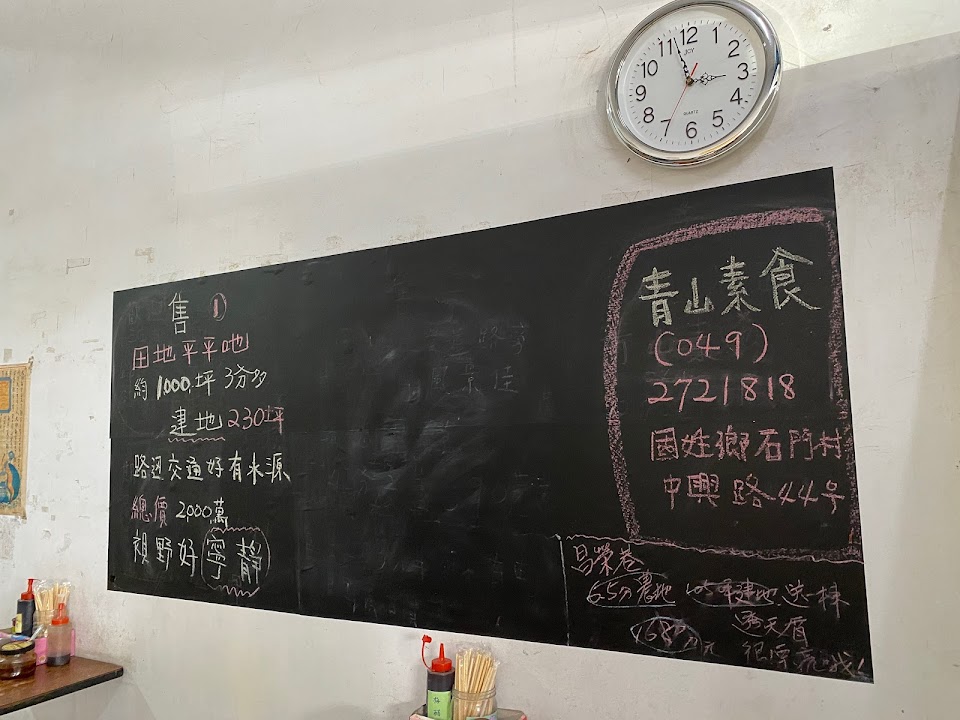 售 ①
田地平平吔
約1000坪 3分多
建地230坪
路迎交通好有水源
總價2,000萬
視野好寧靜
風景佳
青山素食
(049)
2721818
國姓鄉石門村
中興路44号
昌榮巷
6.5分農地 建地 送一棟
透天厝
很漂亮哦!
12
1
2
3
4
5
6
7
8
9
10
11
JOY
QUARTZ
梅醋